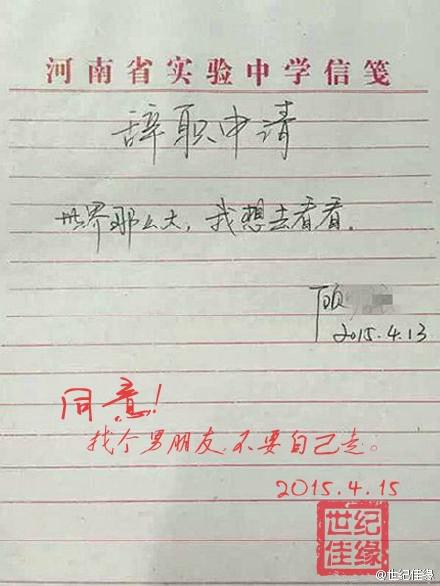 河南省实验中学信笺
辞职申请
世界那么大,我想去看看.
顾
2015.4.13
同意!
找个男朋友,不要自己走。
2015.4.15
世纪
佳缘
@世纪佳缘